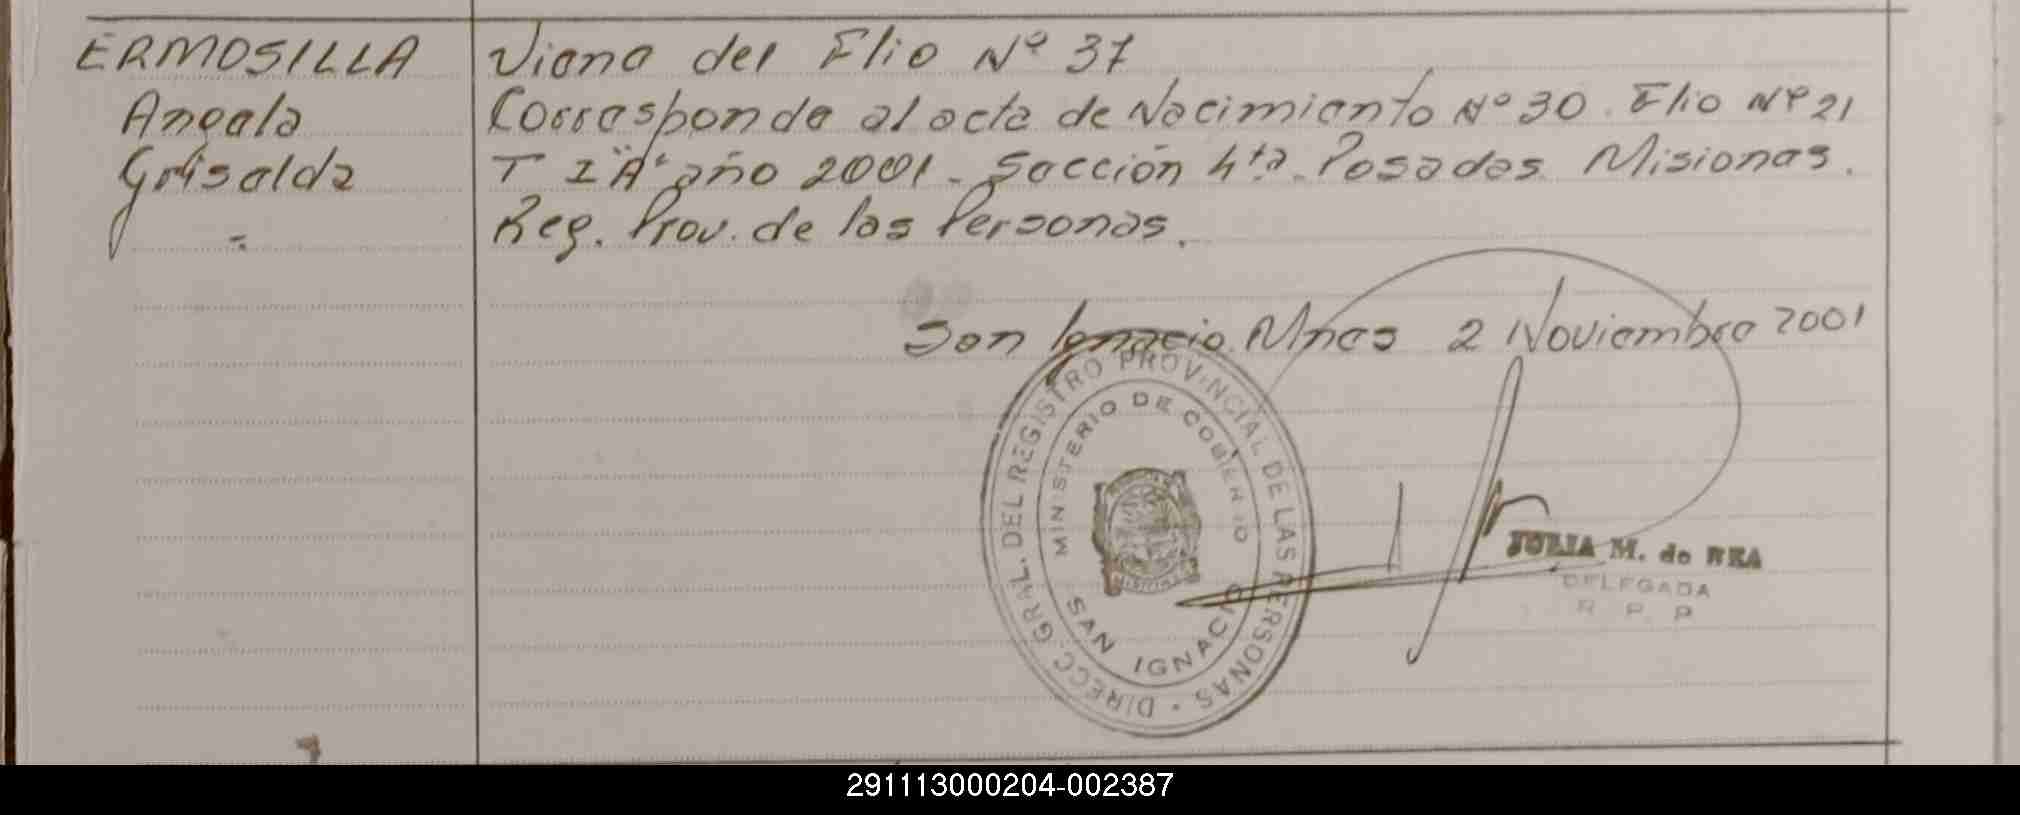 ERMOSILLA
Angela
Griselda
=
Viene del Flio Nº 37
Corresponde al acta de Nacimiento Nº 30. Flio Nº 21
T I "A" año 2001 - Sección 4ta. Posadas Misiones.
Reg. Prov. de las Personas.
San Ignacio. Mnes 2 Noviembre 2001
DIRECC. GRAL. DEL REGISTRO PROVINCIAL DE LAS PERSONAS
MINISTERIO DE GOBIERNO
MISIONES
SAN IGNACIO
JULIA M. de REA
DELEGADA
R. P. P
291113000204-002387